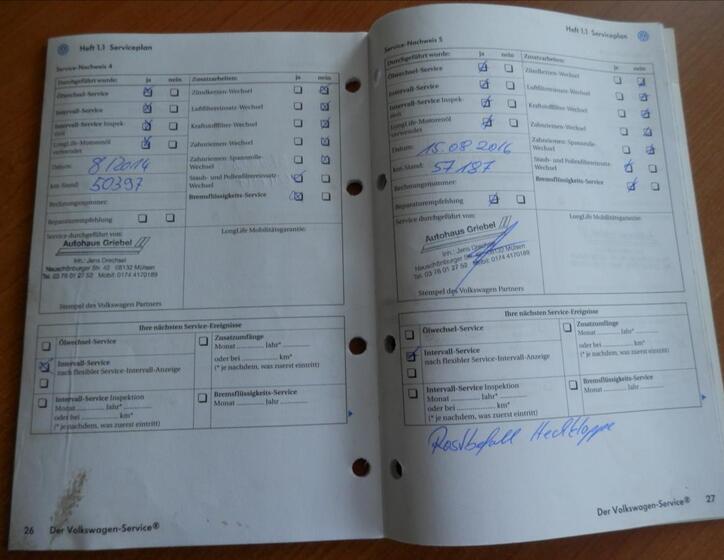 Heft 1.1 Serviceplan
Service-Nachweis 4
Durchgeführt wurde: ja nein
Ölwechsel-Service
Intervall-Service
Intervall-Service Inspek-
tion
LongLife-Motorenöl
verwendet
Datum: 8/2014
km-Stand: 50397
Rechnungsnummer:
Reparaturempfehlung
Zusatzarbeiten: ja nein
Zündkerzen-Wechsel
Luftfiltereinsatz-Wechsel
Kraftstofffilter-Wechsel
Zahnriemen-Wechsel
Zahnriemen-Spannrolle-
Wechsel
Staub- und Pollenfiltereinsatz-
Wechsel
Bremsflüssigkeits-Service
Service durchgeführt von:
Autohaus Griebel
Inh.: Jens Drechsel
Neuschönburger Str. 42 08132 Mülsen
Tel. 03 76 01 27 52 Mobil: 0174 4170189
Stempel des Volkswagen Partners
LongLife Mobilitätsgarantie
Ihre nächsten Service-Ereignisse
Ölwechsel-Service
Intervall-Service
nach flexibler Service-Intervall-Anzeige
Intervall-Service Inspektion
Monat Jahr*
oder bei km*
(* je nachdem, was zuerst eintritt)
Zusatzumfänge
Monat Jahr*
oder bei km*
(* je nachdem, was zuerst eintritt)
Bremsflüssigkeits-Service
Monat Jahr
26 Der Volkswagen-Service®
Heft 1.1 Serviceplan
Service-Nachweis 5
Durchgeführt wurde: ja nein
Ölwechsel-Service
Intervall-Service
Intervall-Service Inspek-
tion
LongLife-Motorenöl
verwendet
Datum: 15.08.2016
km-Stand: 57187
Rechnungsnummer:
Reparaturempfehlung
Zusatzarbeiten: ja nein
Zündkerzen-Wechsel
Luftfiltereinsatz-Wechsel
Kraftstofffilter-Wechsel
Zahnriemen-Wechsel
Zahnriemen-Spannrolle-
Wechsel
Staub- und Pollenfiltereinsatz-
Wechsel
Bremsflüssigkeits-Service
Service durchgeführt von:
Autohaus Griebel
Inh.: Jens Drechsel
Neuschönburger Str. 42 08132 Mülsen
Tel. 03 76 01 27 52 Mobil: 0174 4170189
Stempel des Volkswagen Partners
LongLife Mobilitätsgarantie
Ihre nächsten Service-Ereignisse
Ölwechsel-Service
Intervall-Service
nach flexibler Service-Intervall-Anzeige
Intervall-Service Inspektion
Monat Jahr*
oder bei km*
(* je nachdem, was zuerst eintritt)
Zusatzumfänge
Monat Jahr*
oder bei km*
(* je nachdem, was zuerst eintritt)
Bremsflüssigkeits-Service
Monat Jahr
Rostbefall Heckklappe
Der Volkswagen-Service® 27